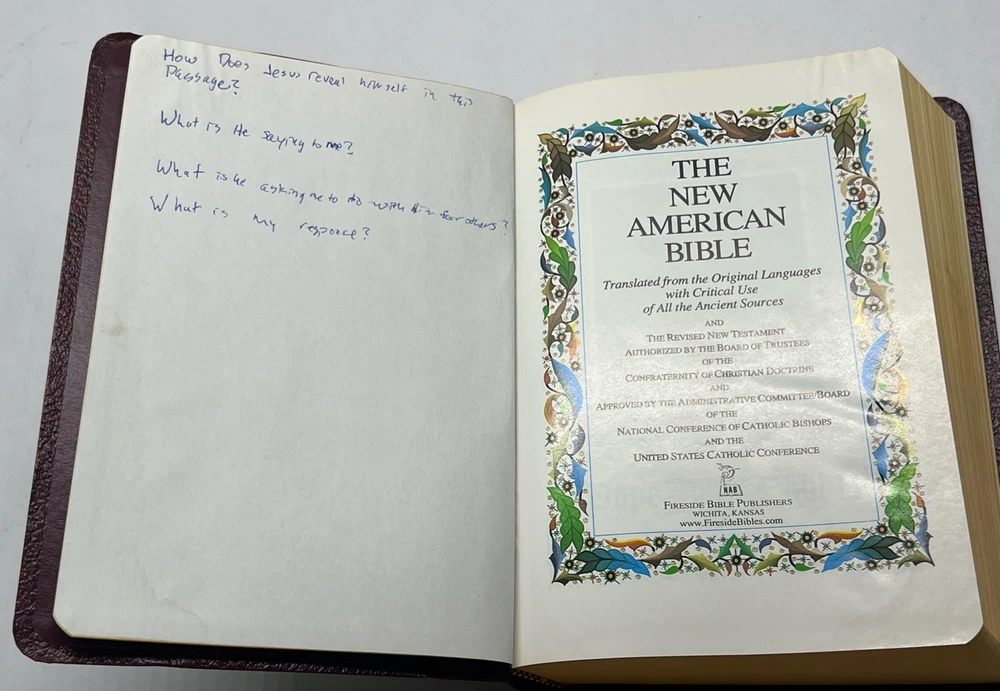 How Does Jesus reveal himself in this
Passage?
What is He saying to me?
What is he asking me to do with Him for others?
What is my responce?
THE
NEW
AMERICAN
BIBLE
Translated from the Original Languages
with Critical Use
of All the Ancient Sources
AND
THE REVISED NEW TESTAMENT
AUTHORIZED BY THE BOARD OF TRUSTEES
OF THE
CONFRATERNITY OF CHRISTIAN DOCTRINE
AND
APPROVED BY THE ADMINISTRATIVE COMMITTEE/BOARD
OF THE
NATIONAL CONFERENCE OF CATHOLIC BISHOPS
AND THE
UNITED STATES CATHOLIC CONFERENCE
NAB
FIRESIDE BIBLE PUBLISHERS
WICHITA, KANSAS
www.FiresideBibles.com